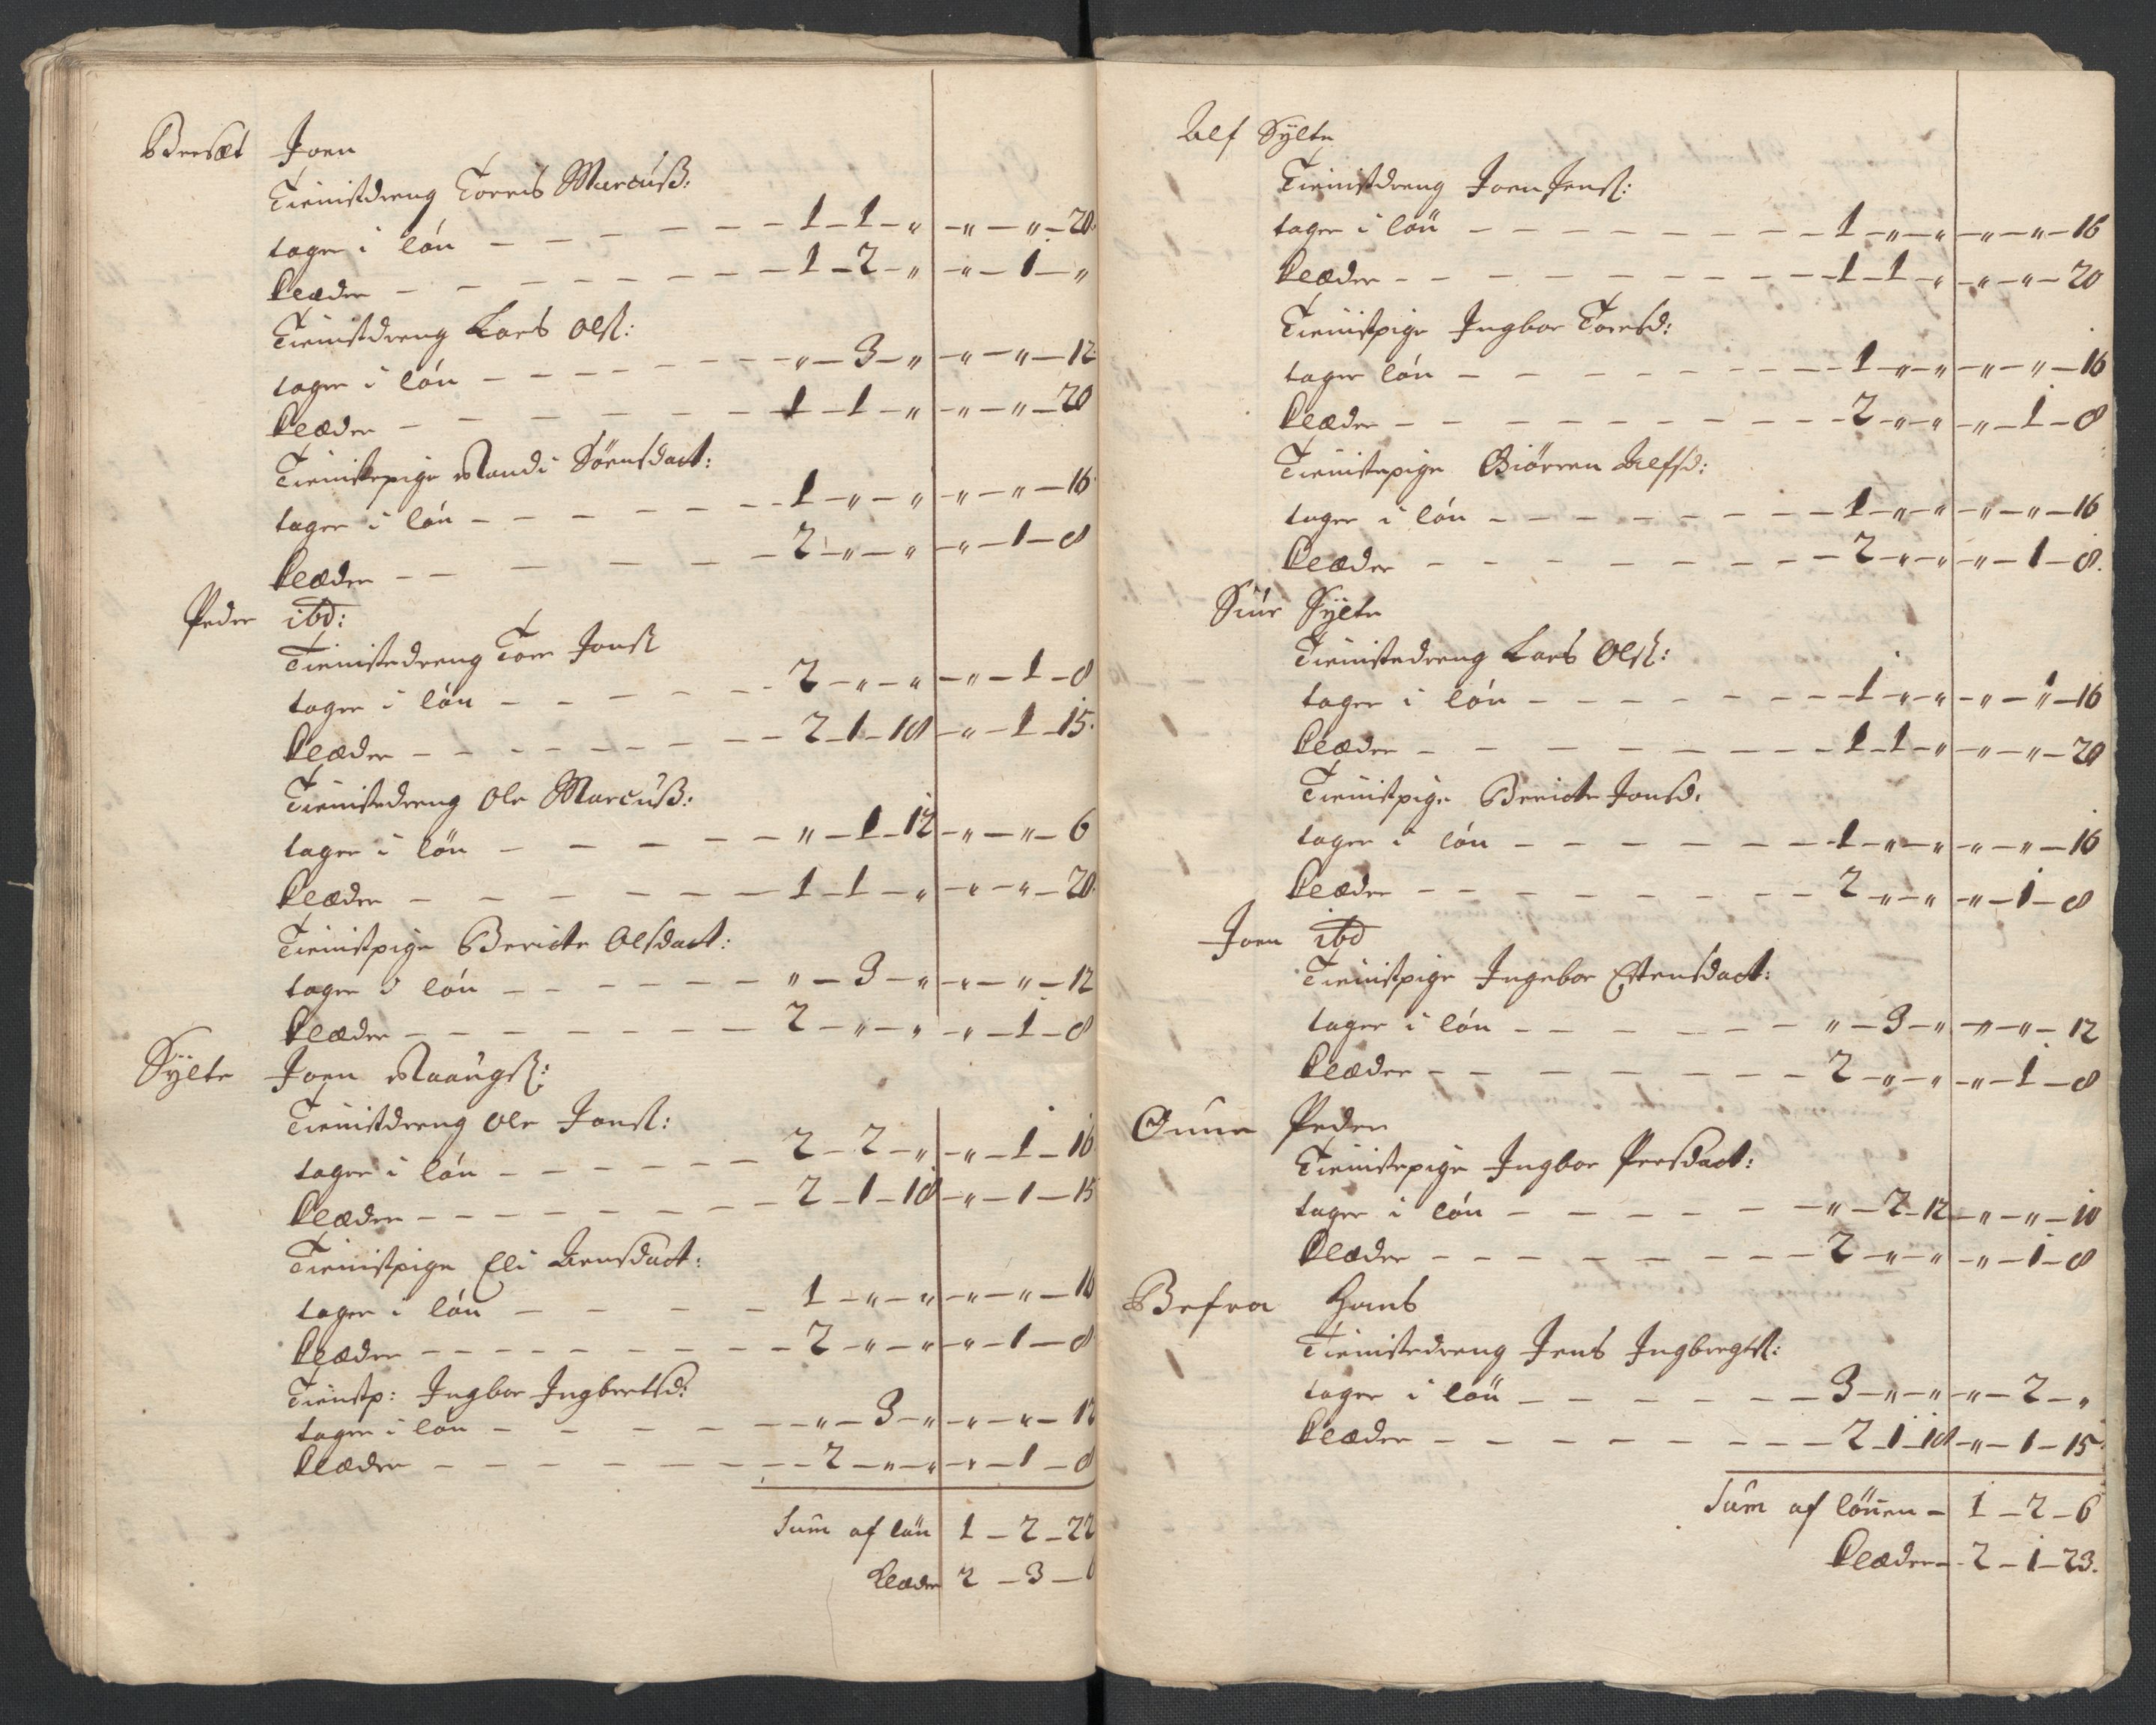 Bersæt Joen
Tienistdreng Torris Marcusß:
tager i lón — 1 — 1 — „ — „ — „ — 20.
klæder — 1 — 2 — „ — „ — 1 — „
Tienistdreng Lars Olß:
tager i lón — „ — 3 — „ — „ — „ — 12
klæder — 1 — 1 — „ — „ — „ — 20
Tienistepige Randi Sörensdaat:
tager i lón — 1 — „ — „ — „ — „ — 16
klæder — 2 — „ — „ — „ — 1 — 8
Peder ibd:
Tienistedreng Tore Jonß
tager i lón — 2 — „ — „ — „ — 1 — 8
klæder — 2 — 1 — 18 — „ — 1 — 15.
Tienistedreng Ole Marcusß:
tager i lön — „ — 1 — 12 — „ — „ — 6
klæder — 1 — 1 — „ — „ — „ — 20.
Tienistpige Bericte Olsdaat:
tager i lón — „ — 3 — „ — „ — „ — 12
klæder — 2 — „ — „ — „ — 1 — 8
Sylte Joen Raaugß:
Tienistdreng Ole Jonß:
tager i lón — 2 — 2 — „ — „ — 1 — 16
klæder — 2 — 1 — 18 — „ — 1 — 15
Tienistpige Eli Arnsdaat:
tager i lón — 1 — „ — „ — „ — „ — 16
klæder — 2 — „ — „ — „ — 1 — 8
Tienstp: Ingbor Ingbretsd:
tager i lón — „ — 3 — „ — „ — „ — 12
klæder — 2 — „ — „ — „ — 1 — 8
Sum af lön 1 — 2 — 22
klæder 2 — 3 —
Alf Sylte
Tienistdreng Joen Jenß:
tager i lön — 1 — „ — „ — „ — „ — 16
klæder — 1 — 1 — „ — „ — „ — 20
Tienistpige Ingbor Toresd:
tager lón — 1 — „ — „ — „ — „ — 16
klæder — 2 — „ — „ — „ — 1 — 8
Tienistepige Giörren Alfsd:
tager i lón — 1 — „ — „ — „ — „ — 16
klæder — 2 — „ — „ — „ — 1 — 8.
Siur Sylte
Tienistedreng Lars Olß:
tager i lón — 1 — „ — „ — „ — „ — 16
klæder — 1 — 1 — „ — „ — „ — 20
Tienistpige Bericte Jonsd:
tager i lón — 1 — „ — „ — „ — „ — 16
klæder — 2 — „ — „ — „ — 1 — 8
Joen ibd
Tienistpige Ingebor Estensdaat:
tager i lón — „ — 3 — „ — „ — „ — 12
klæder — 2 — „ — „ — „ — 1 — 8
Ouue Peder
Tienistepige Ingbor Persdaat:
tager i lón — „ — 2 — 12 — „ — „ — 10
klæder — 2 — „ — „ — „ — 1 — 8
Befra Hans
Tienistedreng Jens Ingbregtß:
tager i lön — 3 — „ — „ — „ — 2 — „
klæder — 2 — 1 — 18 — „ — 1 — 15
Sum af lönen — 1 — 2 — 6
klæder — 2 — 1 — 23.